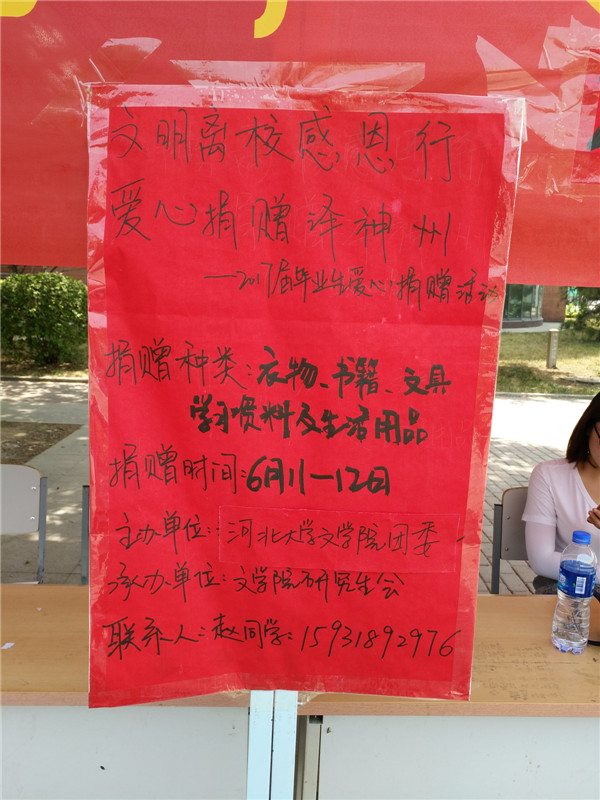 文明离校感恩行
爱心捐赠泽神州
——2017届毕业生爱心捐赠活动
捐赠种类:衣物、书籍、文具
学习资料及生活用品
捐赠时间:6月11—12日
主办单位:河北大学文学院团委
承办单位:文学院研究生会
联系人:赵同学:15931892976